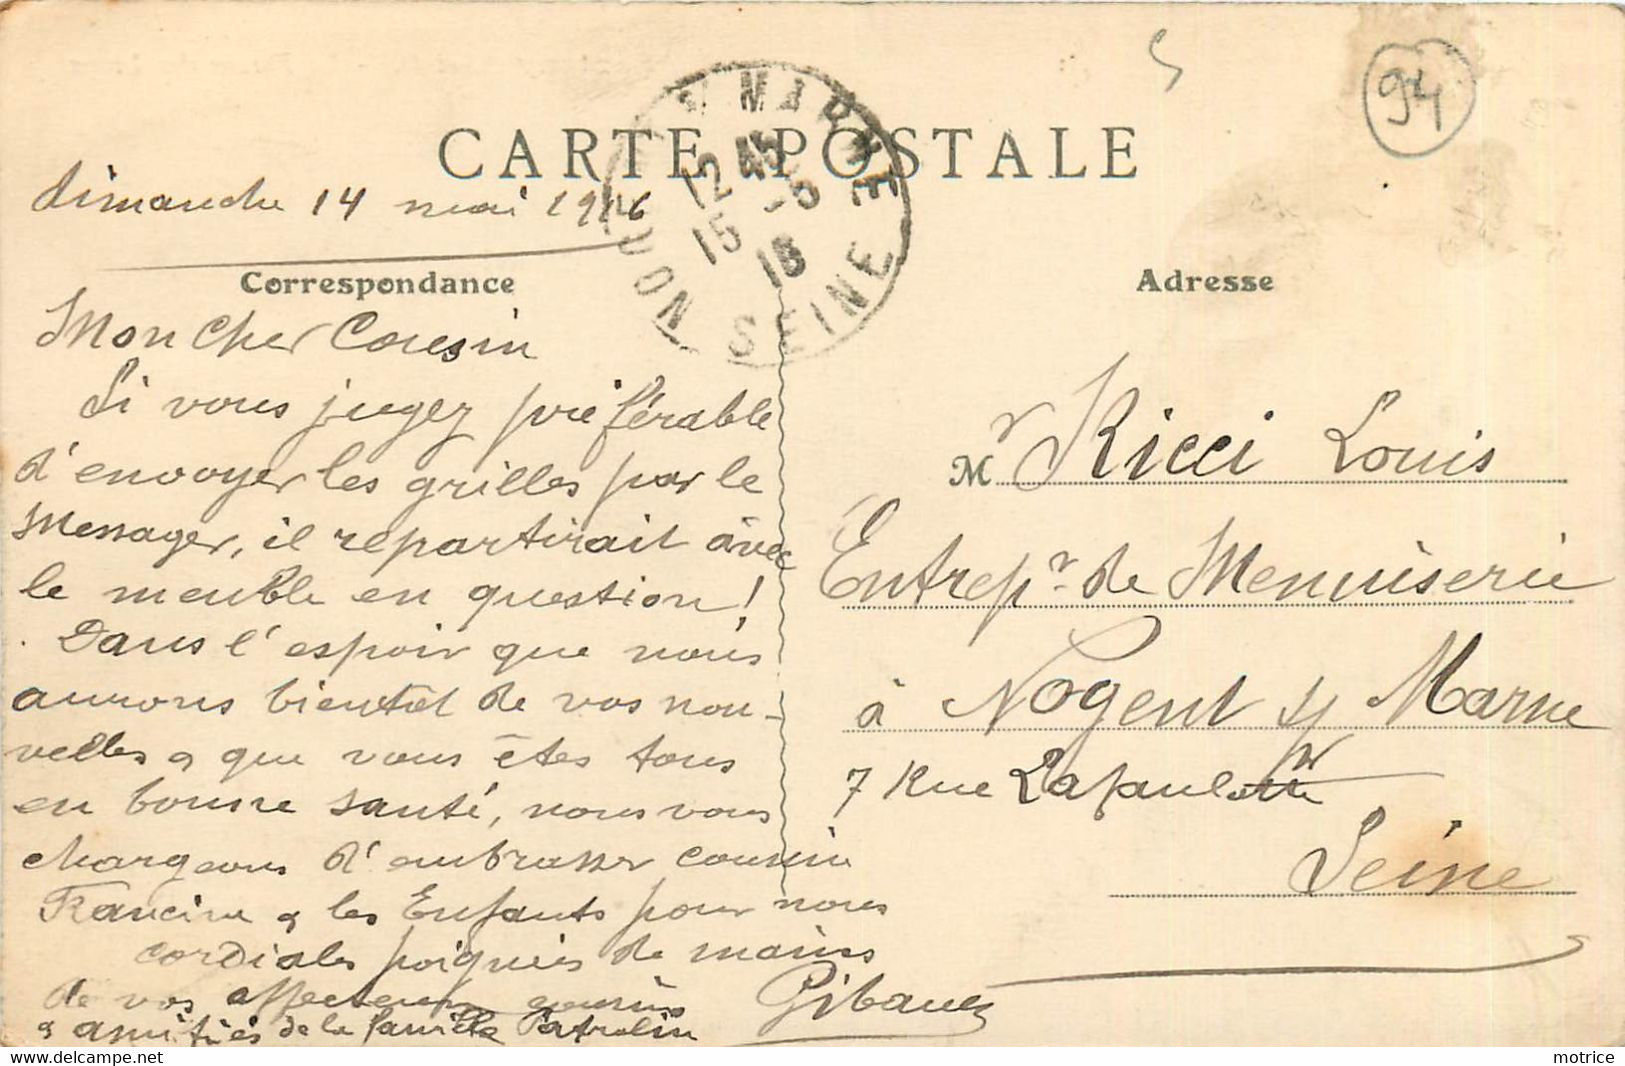 94
CARTE POSTALE
MARNE
12 45
15 -5
16
SEINE
dimanche 14 mai 1916
Correspondance
Mon Cher Cousin
Si vous jugez préférable
d'envoyer les grilles par le
Messager, il repartirait avec
le meuble en question !
Dans l'espoir que nous
aurons bientôt de vos nou-
velles & que vous êtes tous
en bonne santé, nous vous
chargeons d'embrasser cousine
Francine & les Enfants pour nous
cordiales poignées de mains
de vos affectueux cousins
Gibault
& amitiés de la famille
Adresse
M r Ricci Louis
Entrepr. de Menuiserie
à Nogent s/ Marne
7 Rue
Seine
motrice